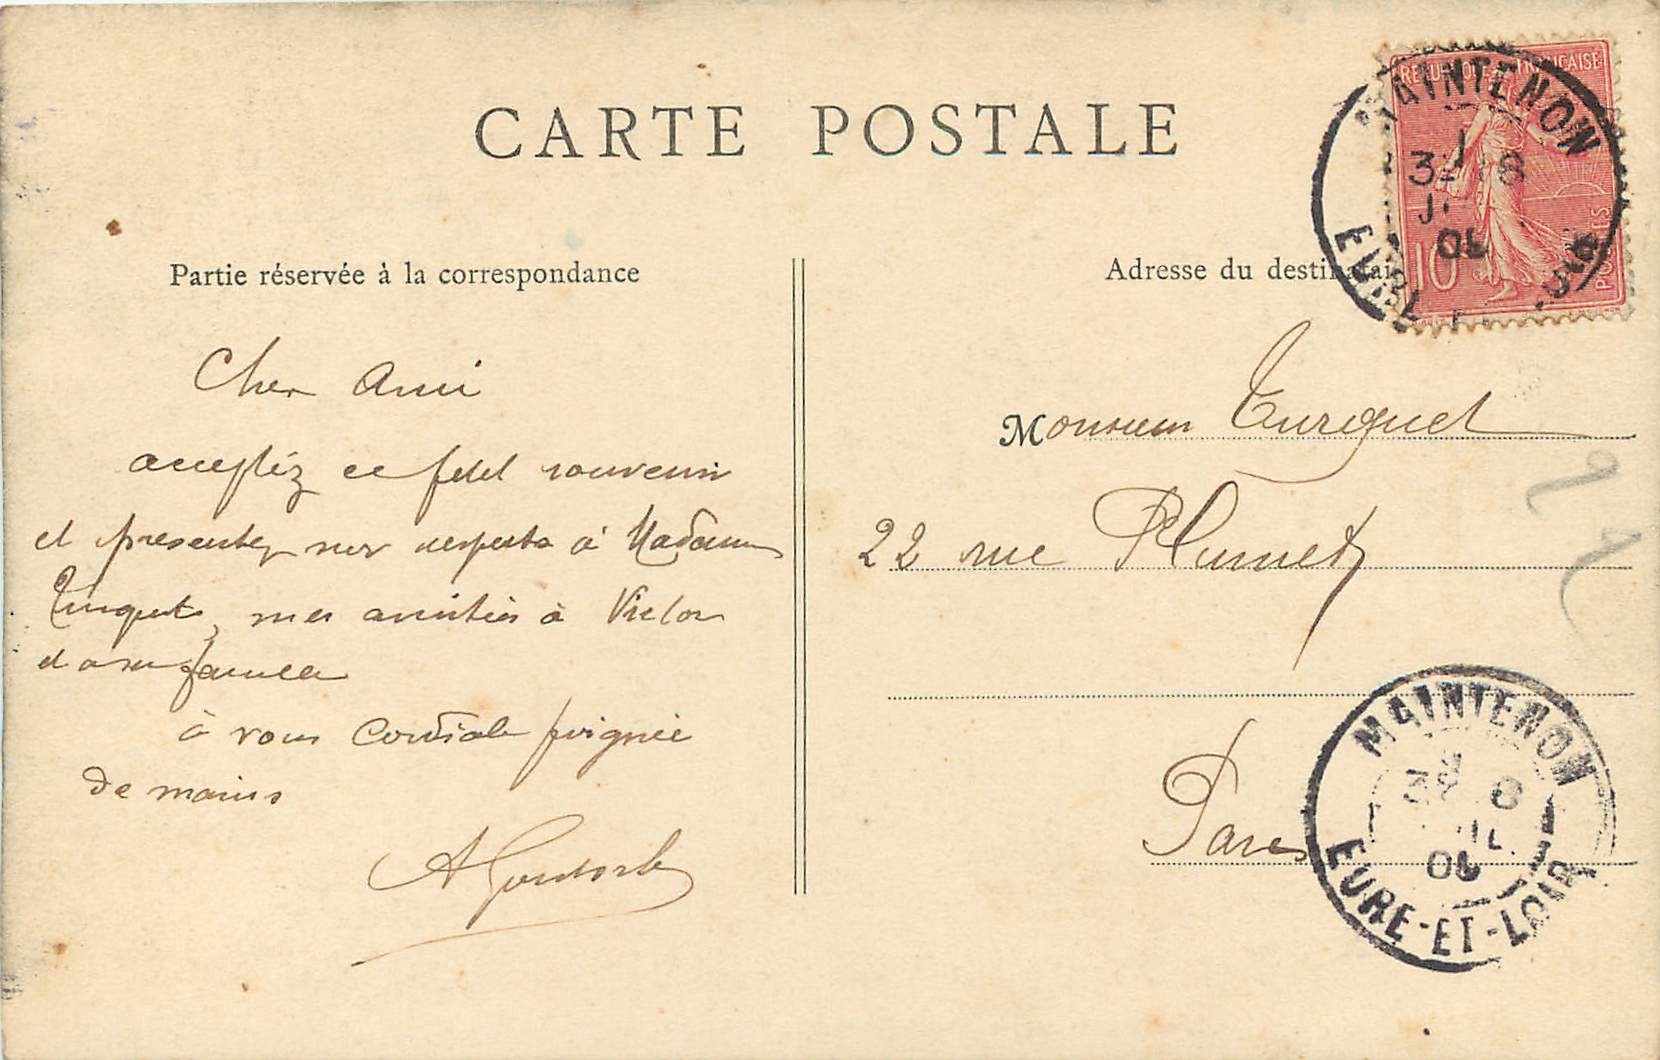 CARTE POSTALE
Partie réservée à la correspondance
Cher Ami
acceptéz ce petit souvenir
et presentez mes respects à Madame
Turquet, mes amitiés à Victor
et a sa famille
à vous Cordiale poignée
de mains
A
Adresse du destinatai
REPUBLIQUE FRANÇAISE
10
POSTES
MAINTENON
3E 8
05
EURE
Monsieur Turquet
22 rue Plumet
Paris
MAINTENON
3E 8
JUIL
05
EURE-ET-LOIR